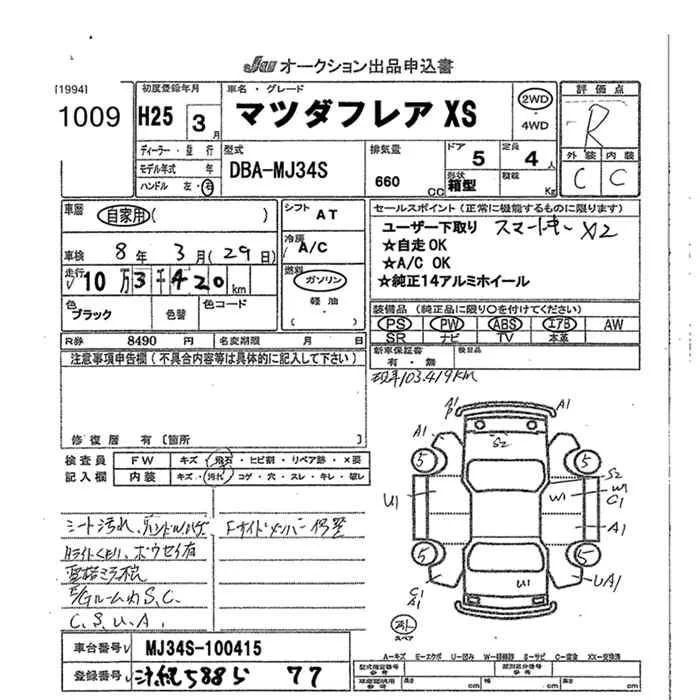 JU オークション出品申込書
[1994]
1009
初度登録年月
H25 3月
車名・グレード
マツダフレア XS
2WD
4WD
評価点
R
ディーラー・並行
モデル年式 年
ハンドル 左・右
型式
DBA-MJ34S
排気量
660 CC
ドア 5
定員 4人
形状
箱型
積載 Kg
外装 内装
C C
車歴
自家用( )
シフト AT
セールスポイント(正常に機能するものに限ります)
ユーザー下取り スマートキー X2
☆自走OK
☆A/C OK
☆純正14アルミホイール
車検 8年 3月(29日)
冷房
A/C
走行
10万3千420km
燃料
ガソリン
軽油
( )
色
ブラック
色替
色コード
装備品(純正品に限り〇を付けてください)
PS PW ABS エアB AW
SR ナビ TV 本革
R券 8490円
名変期限 月 日
新車保証書
有・無
検査品
注意事項申告欄(不具合内容等は具体的に記入して下さい)
現車103.419km
修復歴 有[箇所 ]
検査員
記入欄
FW キズ・飛石・ヒビ割・リペア跡・×要
内装 キズ・汚れ・コゲ・穴・スレ・キレ・破レ
A1
P
A1
A1
S2
5
5
S2
W1
W1
C1
U1
A1
5
5
U1
UA1
C1
A1
スペア
シート汚れ、
Fサイドメンバー
ライトくもり、
E/Gルーム内S.C.
C.S.U.A.
車台番号 MJ34S-100415
登録番号 沖縄588ら 77
A−キズ E−エクボ U−凹み W−補修跡 S−サビ C−腐食 XX−交換済
型式指定番号
参考
類別区分番号
参考
参考 長さ cm 幅 cm 高さ cm